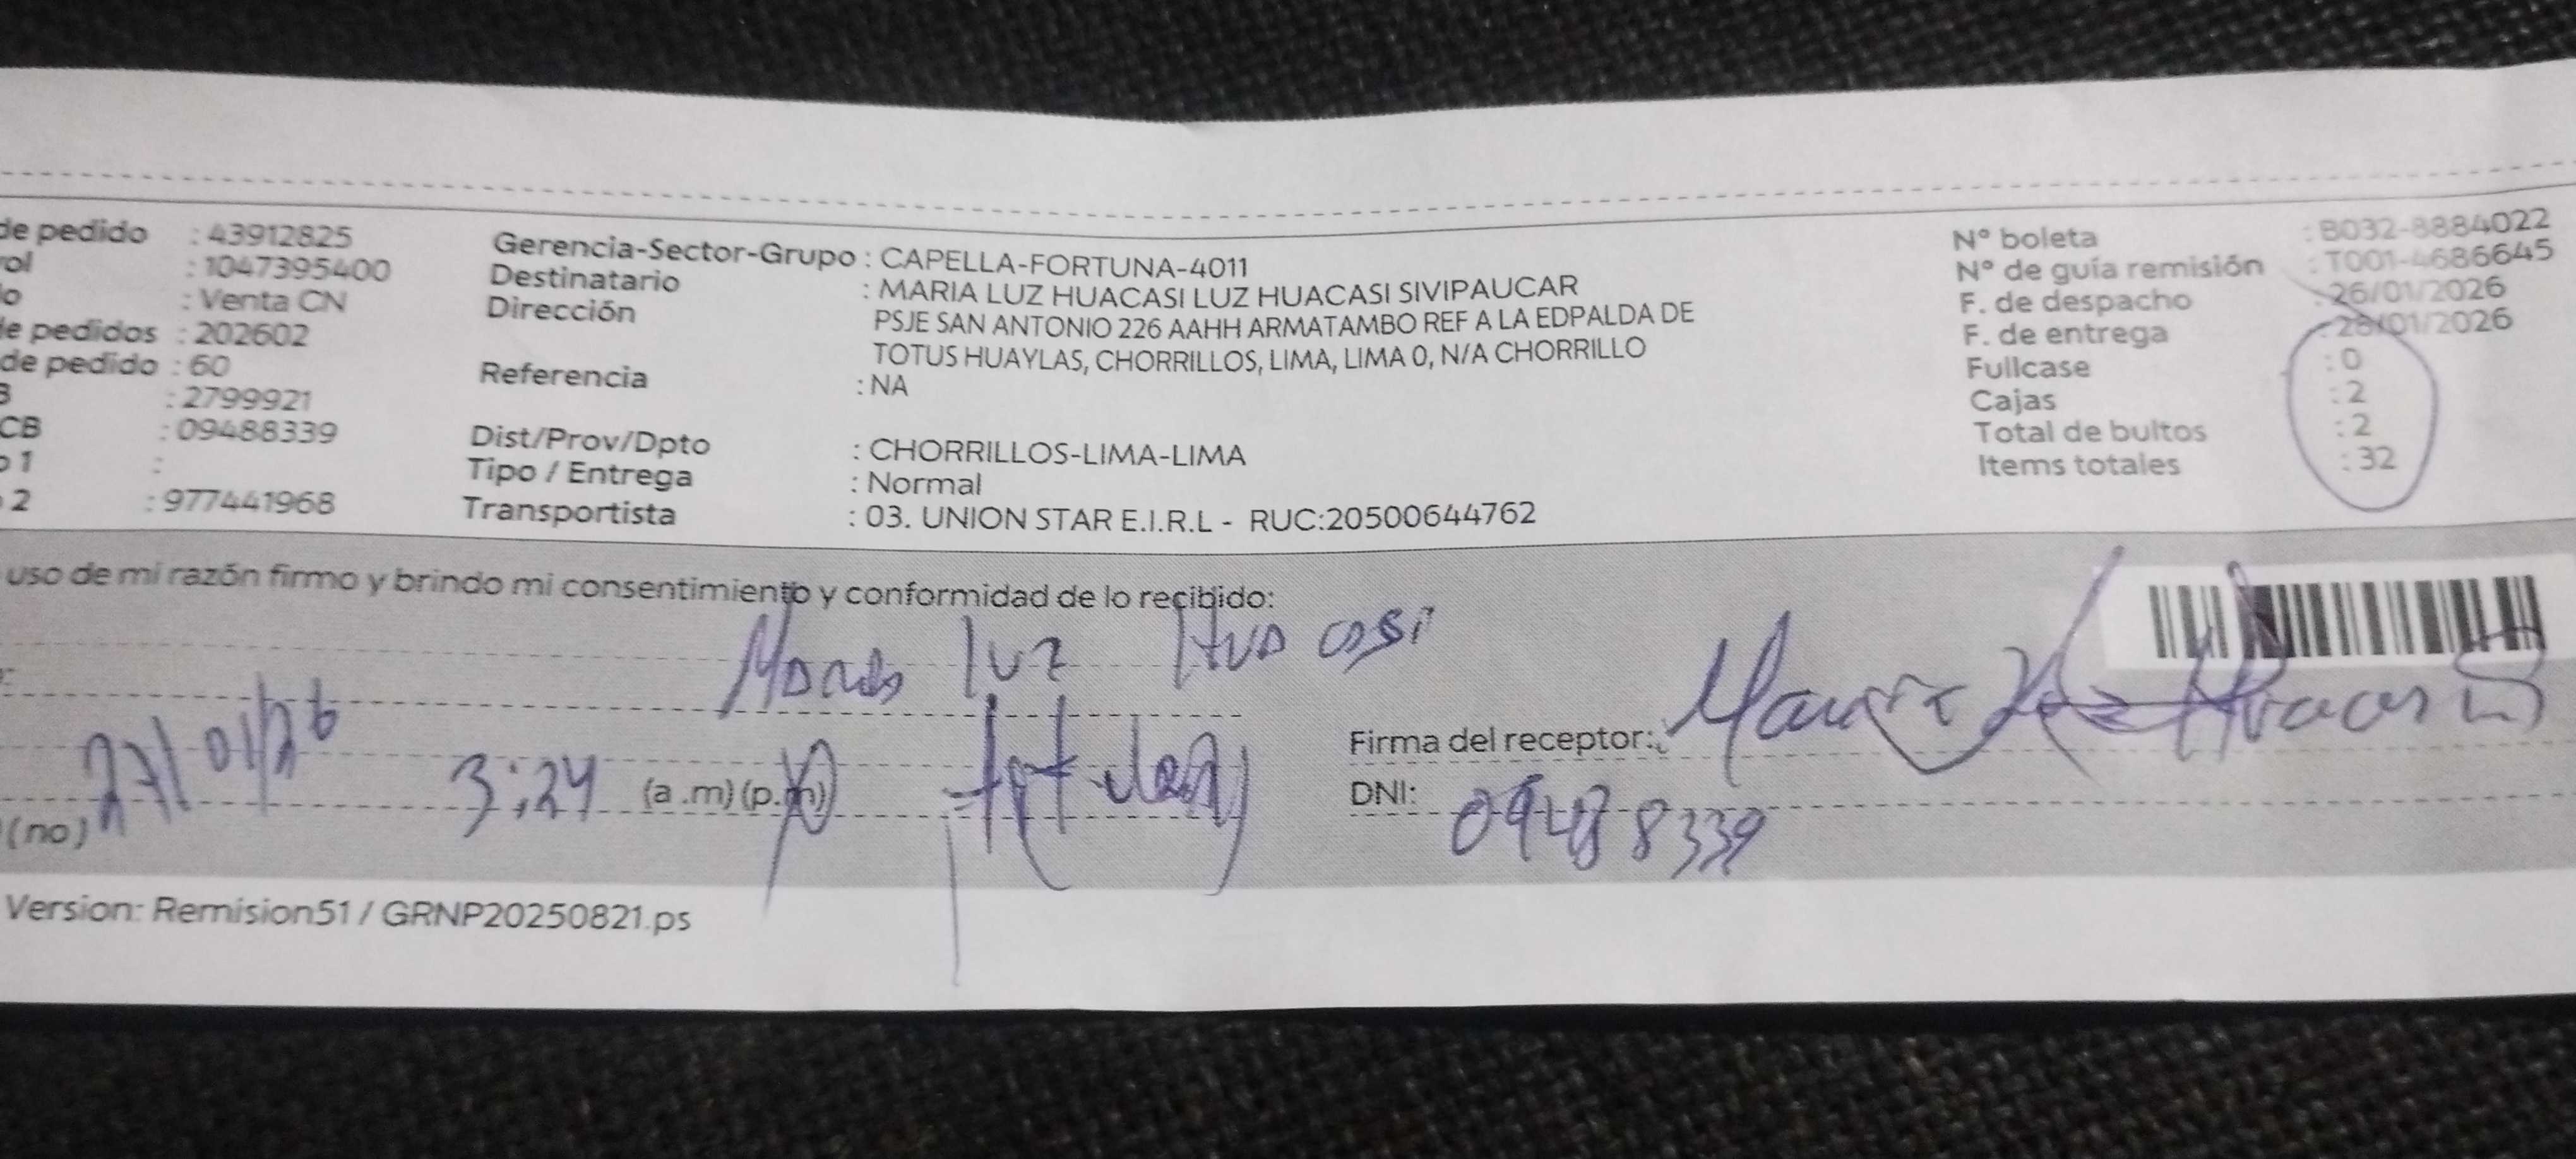 de pedido : 43912825
ol : 1047395400
o : Venta CN
e pedidos : 202602
de pedido : 60
: 2799921
CB : 09488339
o 1 :
2 : 977441968
Gerencia-Sector-Grupo : CAPELLA-FORTUNA-4011
Destinatario : MARIA LUZ HUACASI LUZ HUACASI SIVIPAUCAR
Dirección PSJE SAN ANTONIO 226 AAHH ARMATAMBO REF A LA EDPALDA DE
TOTUS HUAYLAS, CHORRILLOS, LIMA, LIMA 0, N/A CHORRILLO
Referencia : NA
Dist/Prov/Dpto : CHORRILLOS-LIMA-LIMA
Tipo / Entrega : Normal
Transportista : 03. UNION STAR E.I.R.L - RUC:20500644762
N° boleta : B032-8884022
N° de guía remisión : T001-4686645
F. de despacho : 26/01/2026
F. de entrega : 28/01/2026
Fullcase : 0
Cajas : 2
Total de bultos : 2
Items totales : 32
uso de mi razón firmo y brindo mi consentimiento y conformidad de lo recibido:
Maria luz Huacasi
27/01/26
3:24 (a .m) (p.m)
(no)
Firma del receptor: Maria Luz Huacasi S
DNI: 09488339
Version: Remision51 / GRNP20250821.ps